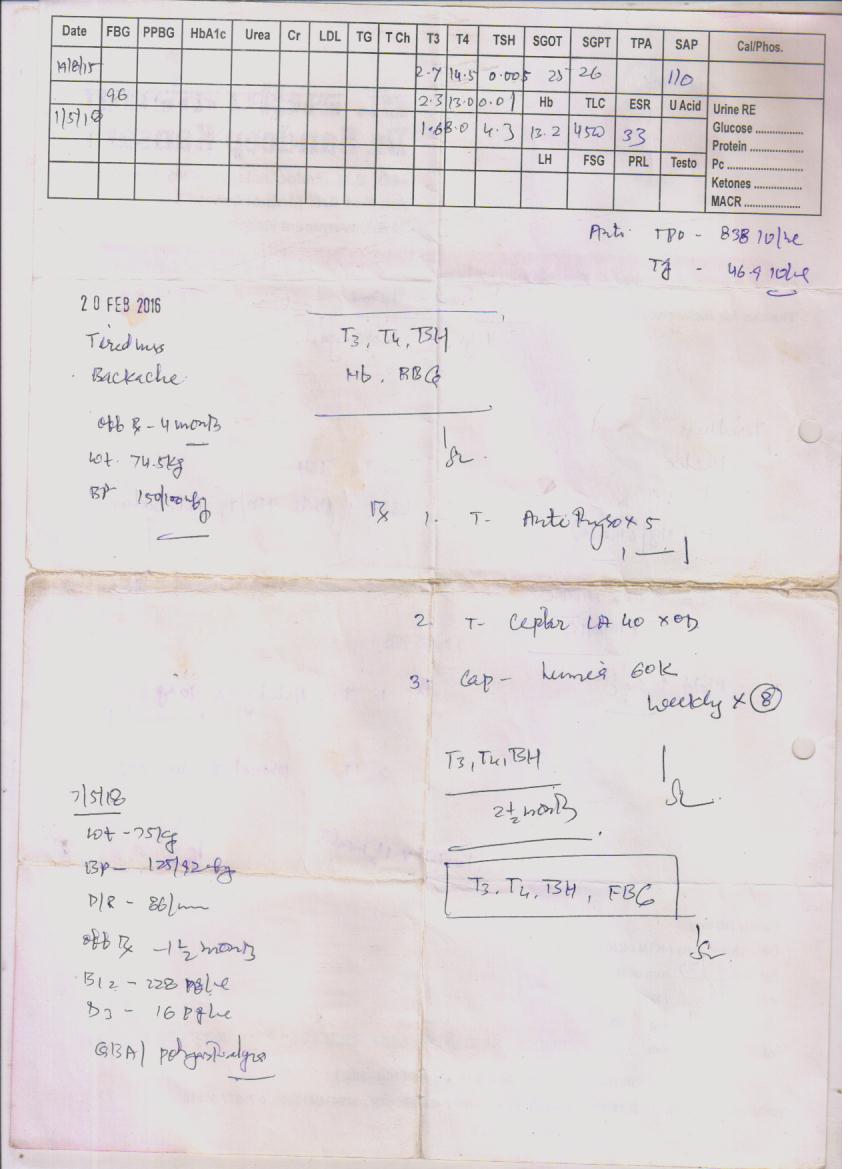 Date FBG PPBG HbA1c Urea Cr LDL TG T Ch T3 T4 TSH SGOT SGPT TPA SAP Cal/Phos.
14/8/15 2.7 14.5 0.005 25 26 110
96 2.3 13.0 0.01 Hb TLC ESR U Acid Urine RE
1/5/18 1.6 8.0 4.3 13.2 4500 33 Glucose ................
Protein ................
LH FSG PRL Testo Pc ................
Ketones ................
MACR ................
Anti TPO - 838 IU/
Tg - 46.9 IU/
20 FEB 2016
Tiredness
Backache
T3, T4, TSH
Hb, RBG
off Rx - 4 month
Wt. 74.5kg
BP 150/100
Rx 1. T- x 5
2. T- LA 40 x OD
3. Cap - 60K
weekly x 8
T3, T4, TSH
2 1/2 month
7/5/18
Wt - 75kg
BP - 125/92
P/R - 86/
off Rx - 1 1/2 month
B12 - 228
D3 - 16
GBA/
T3, T4, TSH, FBG